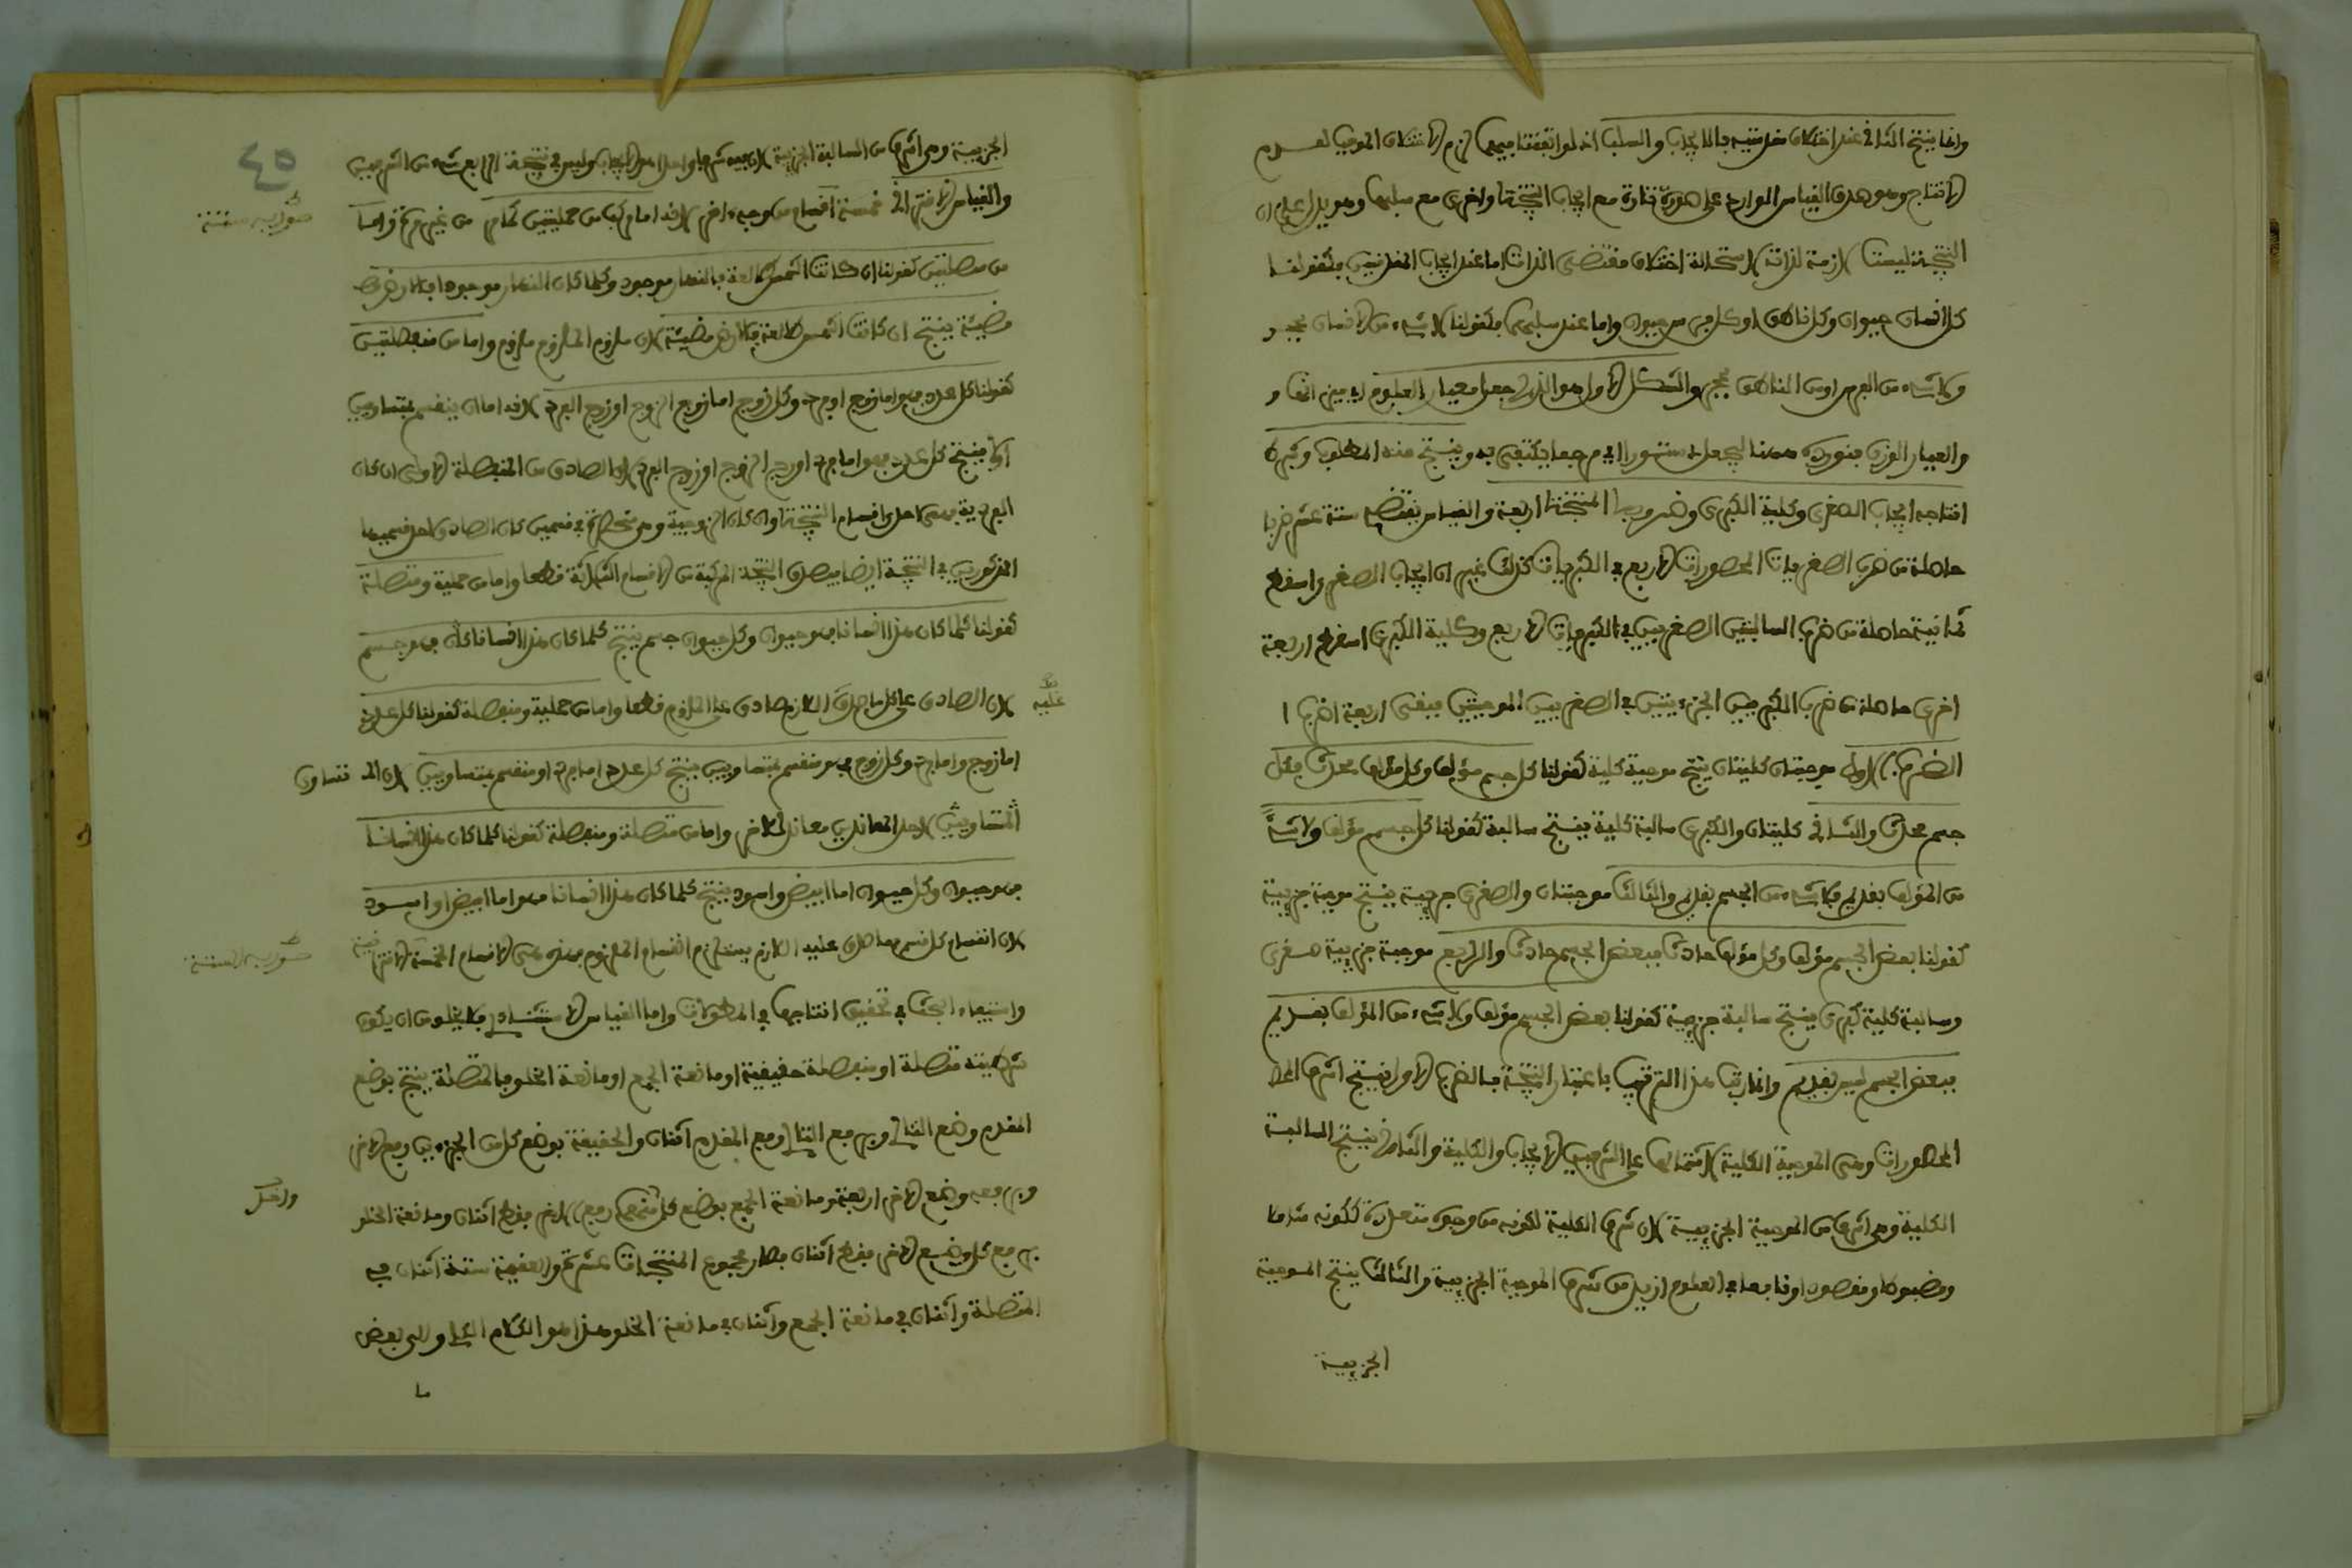 وانما ينتج الثاني عند اختلاف مقدمتيه بالايجاب والسلب اذ لو اتفقتا فيهما لزم الاختلاف الموجب لعدم
الانتاج وهو صدق القياس الوارد على صورة فتارة مع ايجاب النتيجة واخرى مع سلبها وهو يدل على ان
النتيجة ليست لازمة لذاته لاستحالة اختلاف مقتضى الذات اما عند ايجاب المقدمتين فكقولنا
كل انسان حيوان وكل ناطق او كل فرس حيوان واما عند سلبهما فكقولنا لا شيء من الانسان بحجر
ولا شيء من الفرس او من الناطق بحجر والشكل الاول هو الذي جعل معيار العلوم اي ميزانها و
والعيار الوزن فنورده ههنا ليجعل دستورا اي مرجعا يكتفى به وينتج منه المطلوب وشرط
انتاجه ايجاب الصغرى وكلية الكبرى وضروبه المنتجة اربعة والقياس يقتضي ستة عشر ضربا
حاصلة من ضرب الصغريات المحصورات الاربع في الكبريات كذلك غير ان ايجاب الصغرى اسقط
ثمانية حاصلة من ضرب السالبتين الصغريين في الكبريات الاربع وكلية الكبرى اسقط اربعة
اخرى حاصلة من ضرب الكبريين الجزءيتين في الصغريين الموجبتين فبقى اربعة اضرب ا
الضرب الاول موجبتان كليتان ينتج موجبة كلية كقولنا كل جسم مؤلف وكل مؤلف محدث فكل
جسم محدث والثاني كليتان والكبرى سالبة كلية ينتج سالبة كقولنا كل جسم مؤلف ولا شيء
من المؤلف بقديم فلا شيء من الجسم بقديم والثالث موجبتان والصغرى جزيية ينتج موجبة جزيية
كقولنا بعض الجسم مؤلف وكل مؤلف حادث فبعض الجسم حادث والرابع موجبة جزيية صغرى
وسالبة كلية كبرى ينتج سالبة جزيية كقولنا بعض الجسم مؤلف ولا شيء من المؤلف بقديم
فبعض الجسم ليس بقديم وانما رتب هذا الترتيب باعتبار النتيجة فالضرب الاول ينتج اشرف
المحصورات وهي الموجبة الكلية لاشتمالها على الشرفين الايجاب والكلية والثاني ينتج السالبة
الكلية وهي اشرف من الموجبة الجزيية لان شرف الكلية لكونه من وجوه متعددة ككونه شاملا
ومضبوطا ومقصودا ونافعا في العلوم ازيد من شرف الموجبة الجزيية والثالث ينتج الموجبة
الجزيية
٤٥
الجزيية وهي اشرف من السالبة الجزيية لان فيه شرفا واحدا هو الايجاب وليس في نتيجة الرابع شيء من الشرفين
والقياس الاقتراني خمسة اقسام من وجه اخر لانه اما مركب من حمليتين كما مر من غير مرة واما
من متصلتين كقولنا ان كانت الشمس طالعة فالنهار موجود وكلما كان النهار موجود فالارض
مضيئة ينتج ان كانت الشمس طالعة فالارض مضيئة لان ملزوم الملزوم ملزوم واما من منفصلتين
كقولنا كل عدد فهو اما زوج او فرد وكل زوج اما زوج الزوج او زوج الفرد لانه اما ان ينقسم بمتساويين
او لا ينتج كل عدد فهو اما فرد او زوج الزوج او زوج الفرد لان الصادق من المنفصلة الاولى ان كان
الفردية فهي احد اقسام النتيجة وان كان الزوجية وهي منحصرة في قسمين كان الصادق احد قسميها
المذكورين في النتيجة ايضا فيصدق النتيجة المركبة من الاقسام الثلاثة قطعا واما من حملية ومتصلة
كقولنا كلما كان هذا انسانا فهو حيوان وكل حيوان جسم ينتج كلما كان هذا انسانا كان فهو جسم
لان الصادق على كل ما صدق اللازم صادق على الملزوم قطعا واما من حملية ومنفصلة كقولنا كل عدد
عليه
اما زوج واما فرد وكل زوج فهو منقسم بمتساويين ينتج كل عدد اما فرد او منقسم بمتساويين لان
المتساويين لاحد المعاندين معاند للاخر واما من متصلة ومنفصلة كقولنا كلما كان هذا انسانا
فهو حيوان وكل حيوان اما ابيض واسود ينتج كلما كان هذا انسانا فهو اما ابيض او اسود
لان انقسام كل قسم ما صدق عليه اللازم يستلزم انقسام الملزوم فهذه هي الاقسام الخمسة
واستيفاء البحث في تحقيق انتاجها في المطولات واما القياس الاستثنائي فلا يخلو من ان يكون
شرطيته متصلة او منفصلة حقيقية او مانعة الجمع او مانعة الخلو فالمتصلة ينتج بوضع
المقدم وضع التالي وبرفع التالي رفع المقدم اثنان والحقيقة بوضع كل من الجزءين رفع الاخر
وبرفعه وضع الاخر اربعة ومانعة الجمع بوضع كل منهما رفع الاخر فقط اثنان ومانعة الخلو
برفع كل وضع الاخر فقط اثنان فصار مجموع المنتجات عشرة والعقيمة ستة اثنان في
المتصلة واثنان في مانعة الجمع واثنان في مانعة الخلو هذا هو الكلام
ما